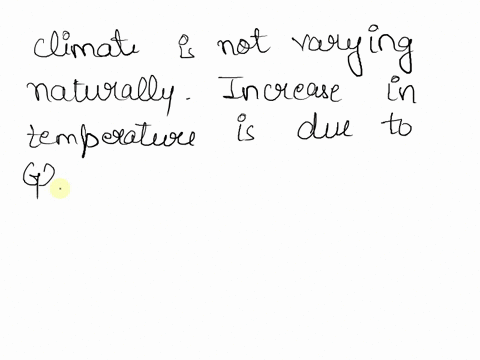 climate is not varying
naturally. Increase in
temperature is due to
G